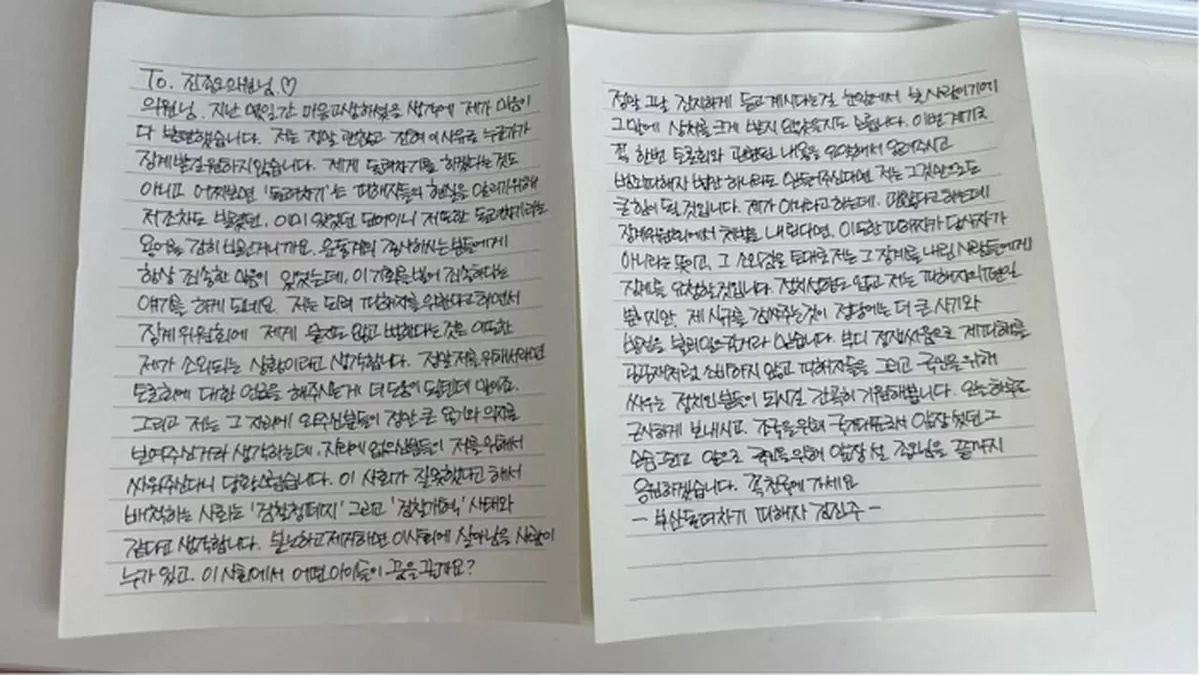 To. 진종오 의원님 ♡
의원님. 지난 몇일간 마음고생하셨을 생각에 제가 마음이
다 불편했습니다. 저는 정말 괜찮고 전혀 이 사유로 누군가가
징계받길 원하지 않습니다. 제게 돌려차기를 하겠다는 것도
아니고 어찌보면 '돌려차기'는 피해자들의 현실을 알리기위해
저조차도 빌렸던, 이미 있었던 단어이니 저또한 돌려차기라는
용어를 감히 빌린거니까요. 운동계의 종사하시는 분들에게
항상 죄송한 마음이 있었는데, 이 기회를 빌어 죄송하다는
얘기를 하게 되네요. 저는 도리어 피해자를 위한다고 하면서
징계위원회에 제게 묻지도 않고 벌한다는 것은 또한
제가 소외되는 상황이라고 생각합니다. 정말 저를 위해서라면
토론회에 대한 언급을 해주시는게 더 도움이 될텐데 말이죠.
그리고 저는 그 자리에 와주신분들이 정말 큰 용기와 의지를
보여주신거라 생각하는데, 자리에 없으신분들이 저를 위해서
싸워주신다니 당황스럽습니다. 이 사회가 잘못했다고 해서
배척하는 사회는 '검찰청폐지' 그리고 '검찰개혁' 사태와
같다고 생각합니다. 분노하고 제거하면 이사회에 살아남을 사람이
누가 있고. 이 사회에서 어떤 아이들이 꿈을 꿀까요?
정말 그날 진지하게 듣고계시다는걸 눈앞에서 본 사람이기에
그 말에 상처를 크게 받지 않았을지도 모릅니다. 이번 계기로
꼭 한번 토론회와 관련된 내용을 요약해서 알려주시고
범죄피해자 법안 하나라도 만들어주신다면 저는 그것만으로도
큰 힘이 될 것입니다. 제가 아니라고 하는데, 괜찮다고 하는데
징계위원회에서 처벌을 내린다면, 이 또한 피해자가 당사자가
아니라는 뜻이고, 그 소외감을 토대로 저는 그 징계를 내린 사람들에게
징계를 요청할 것입니다. 정치성향도 없고 저는 피해자의 편일
뿐이지만, 제 식구를 감싸주는것이 정당에는 더 큰 사기와
발전을 불러일으킬거라 믿습니다. 부디 정쟁싸움으로 제 피해를
광광재처럼 소비하지 않고 피해자들을 그리고 국민을 위해
싸우는 정치인분들이 되시길 간곡히 기원해봅니다. 오늘 하루도
근사하게 보내시고. 조국을 위해 국가대표로서 앞장 섰던 그
모습 그리고 앞으로 국민을 위해 앞장 설 종오님을 끝까지
응원하겠습니다. 꼭 천국에 가세요
- 부산돌려차기 피해자 김진주 -